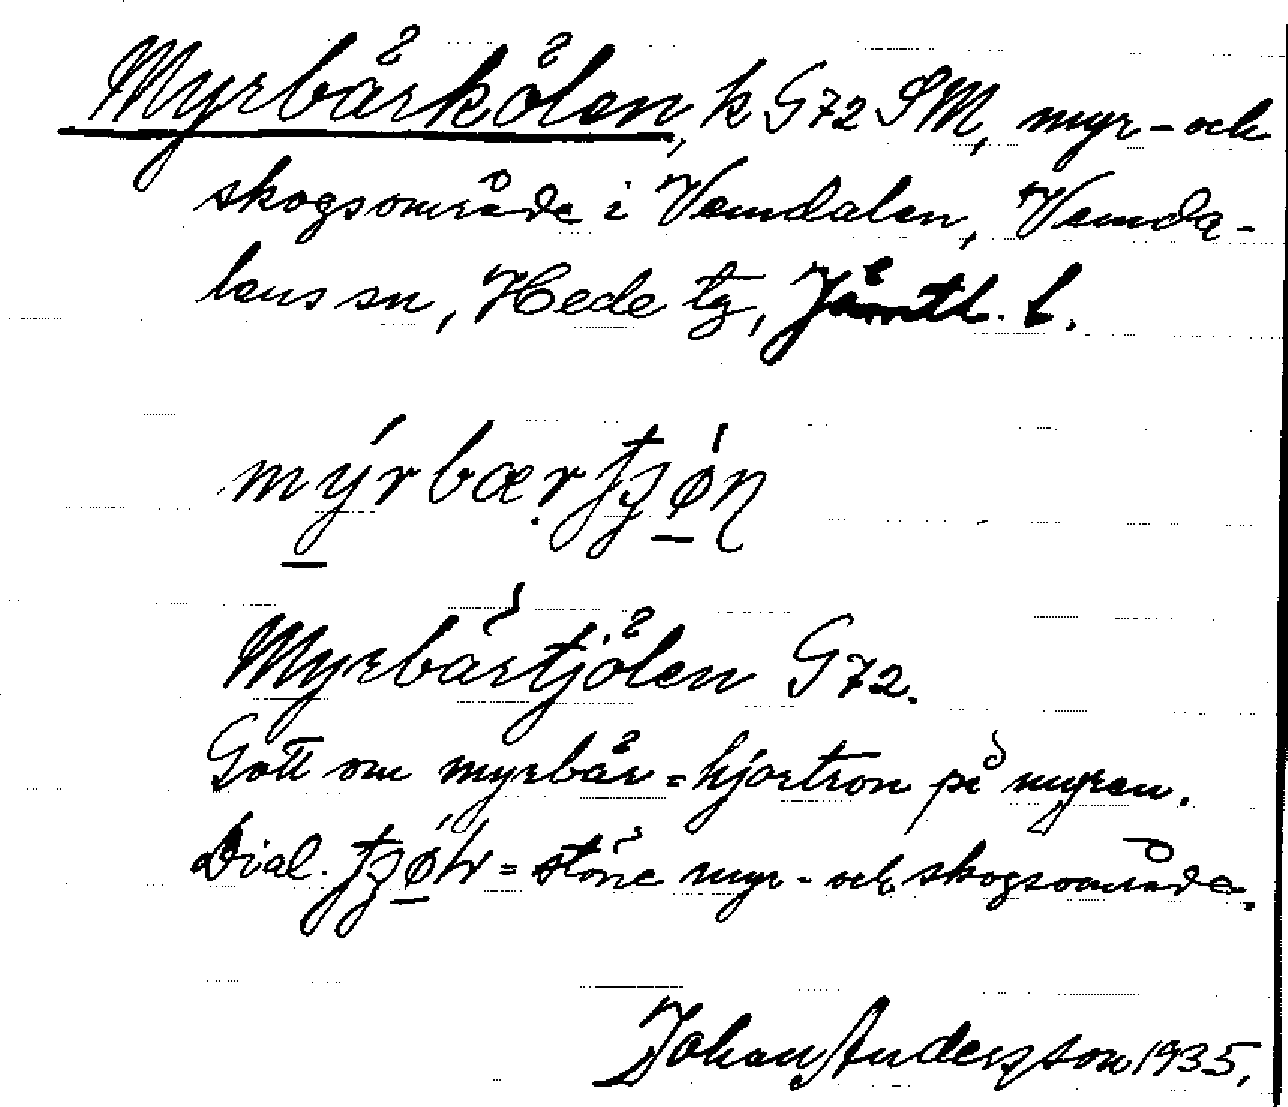 Myrbärkölen, k G72 SM, myr- och
skogsområde i Vemdalen, Vemda-
lens sn, Hede tg, Jämtl. l.
Myrbärtjölen G72.
Gott om myrbär = hjortron på myren.
Dial. = större myr- och skogsområde.
Johan Andersson 1935.